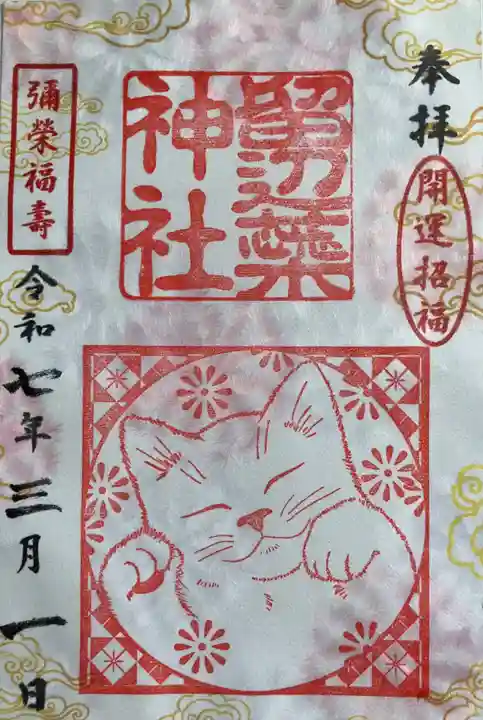 奉拝
開運招福
留辺蘂
神社
彌榮福壽
令和七年三月一日